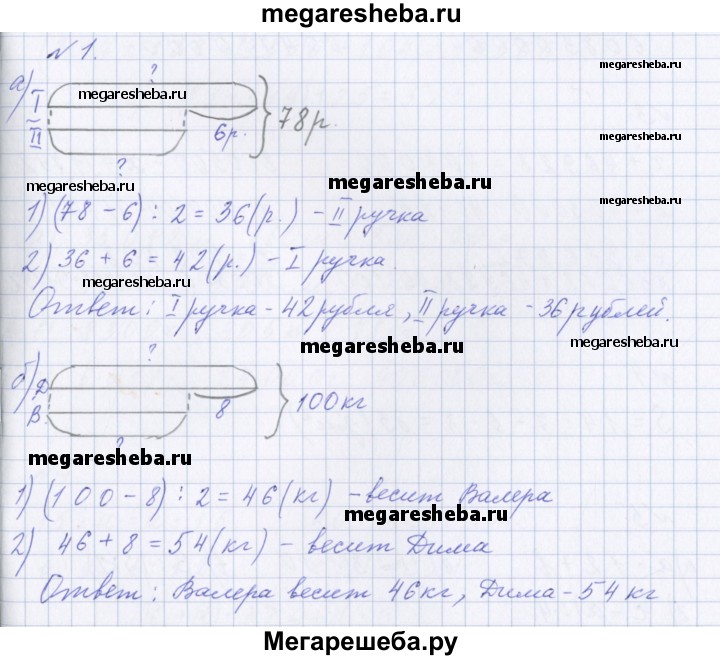 megaresheba.ru
№ 1.
а)
?
megaresheba.ru
megaresheba.ru
I
II
6р.
78р.
megaresheba.ru
?
megaresheba.ru
megaresheba.ru
megaresheba.ru
1) (78 - 6) : 2 = 36 (р.) - II ручка
2) 36 + 6 = 42 (р.) - I ручка.
megaresheba.ru
Ответ: I ручка - 42 рубля, II ручка - 36 рублей.
megaresheba.ru
megaresheba.ru
б)
?
Д
В
8
100 кг
?
megaresheba.ru
1) (100 - 8) : 2 = 46 (кг) - весит Валера
megaresheba.ru
2) 46 + 8 = 54 (кг) - весит Дима
Ответ: Валера весит 46 кг, Дима - 54 кг.
Мегарешеба.ру